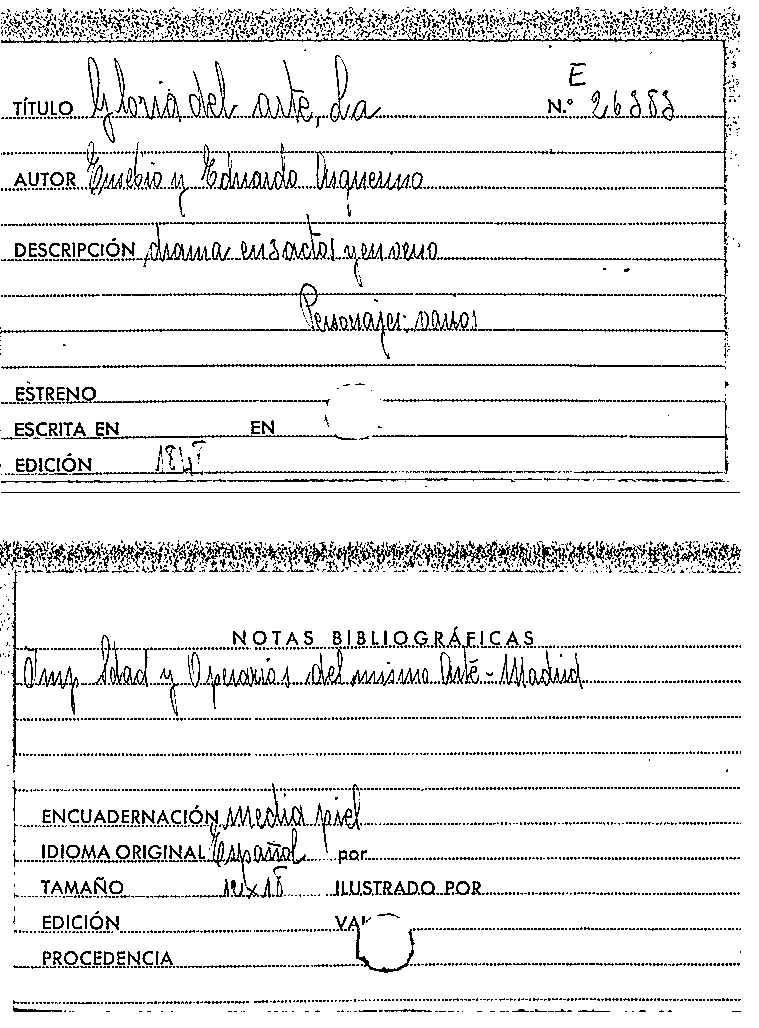 E
TÍTULO Gloria del arte, La N.º 26383
AUTOR Eusebio y Eduardo Asquerino
DESCRIPCIÓN drama en 3 actos y en verso
Personajes: varios
ESTRENO
ESCRITA EN EN
EDICIÓN
NOTAS BIBLIOGRÁFICAS
Imp Sdad y Operarios del mismo Arte - Madrid
ENCUADERNACIÓN media piel
IDIOMA ORIGINAL Español por
TAMAÑO ILUSTRADO POR
EDICIÓN
PROCEDENCIA